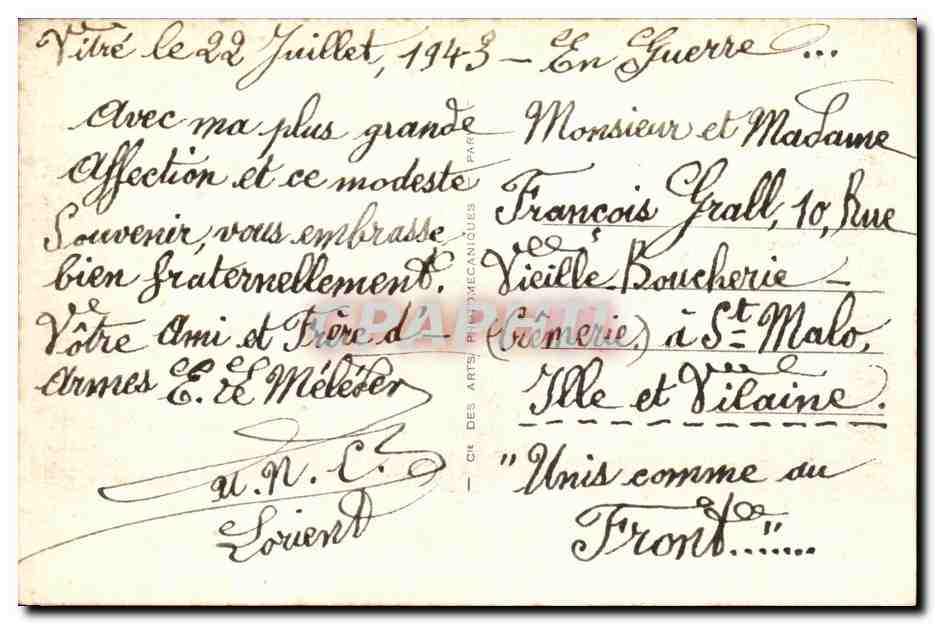 Vitré le 22 Juillet, 1943 - En Guerre ...
Avec ma plus grande
Affection et ce modeste
Souvenir, vous embrasse
bien fraternellement.
Vôtre Ami et Frère d'-
Armes E. Le Mélézer
U.N.C.
Lorient
- Cie DES ARTS PHOTOMECANIQUES PARIS
Monsieur et Madame
François Grall, 10, Rue
Vieille-Boucherie -
(Crêmerie.) à St-Malo,
Ille et Vilaine.
"Unis comme au
Front......"